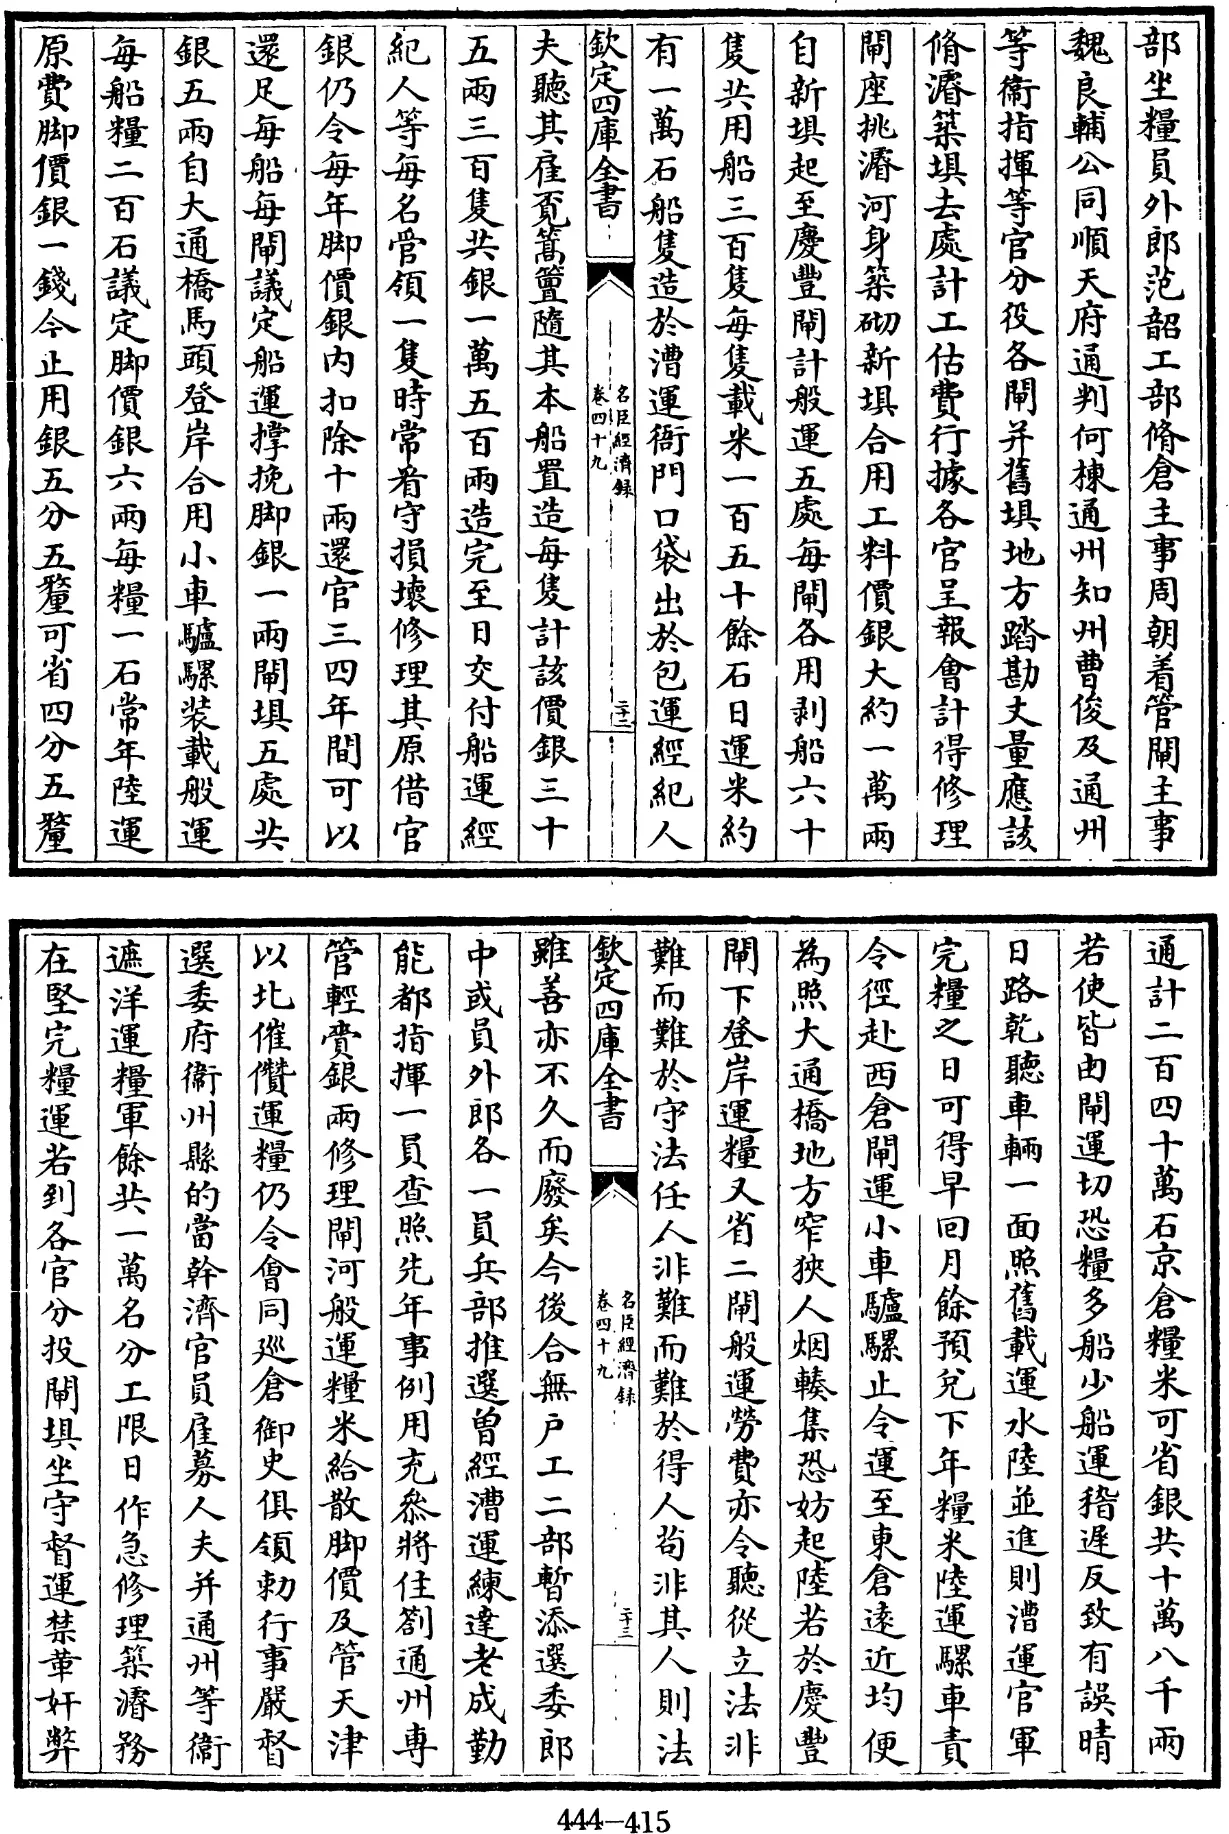 部坐糧員外郎范韶工部脩倉主事周朝着管閘主事
魏良輔公同順天府通判何棟通州知州曹俊及通州
等衞指揮等官分役各閘并舊垻地方踏勘丈量應該
脩濬築垻去處計工估費行據各官呈報會計得修理
閘座挑濬河身築砌新垻合用工料價銀大約一萬兩
自新垻起至慶豐閘計般運五處每閘各用剥船六十
隻共用船三百隻每隻載米一百五十餘石日運米約
有一萬石船隻造於漕運衙門口袋出於包運經紀人
欽定四庫全書
名臣經濟録
卷四十九
二十二
夫聽其雇覓篙簟隨其本船置造每隻計該價銀三十
五兩三百隻共銀一萬五百兩造完至日交付船運經
紀人等每名管領一隻時常看守損壞修理其原借官
銀仍令每年脚價銀内扣除十兩還官三四年間可以
還足每船每閘議定船運撑挽脚銀一兩閘垻五處共
銀五兩自大通橋馬頭登岸合用小車驢騾裝載般運
每船糧二百石議定脚價銀六兩每糧一石常年陸運
原費脚價銀一錢今止用銀五分五釐可省四分五釐
通計二百四十萬石京倉糧米可省銀共十萬八千兩
若使皆由閘運切恐糧多船少船運稽遲反致有誤晴
日路乾聽車輛一面照舊載運水陸並進則漕運官軍
完糧之日可得早回月餘預兌下年糧米陸運騾車責
令徑赴西倉閘運小車驢騾止令運至東倉遠近均便
為照大通橋地方窄狹人烟輳集恐妨起陸若於慶豐
閘下登岸運糧又省二閘般運勞費亦令聽從立法非
難而難於守法任人非難而難於得人茍非其人則法
欽定四庫全書
名臣經濟録
卷四十九
二十三
雖善亦不久而廢矣今後合無户工二部暫添選委郎
中或員外郎各一員兵部推選曾經漕運練達老成勤
能都指揮一員查照先年事例用充叅將住劄通州專
管輕賫銀兩修理閘河般運糧米給散脚價及管天津
以北催儹運糧仍令會同廵倉御史俱領勅行事嚴督
選委府衞州縣的當幹濟官員雇募人夫并通州等衞
遮洋運糧軍餘共一萬名分工限日作急修理築濬務
在堅完糧運若到各官分投閘垻坐守督運禁革奸弊
444-415